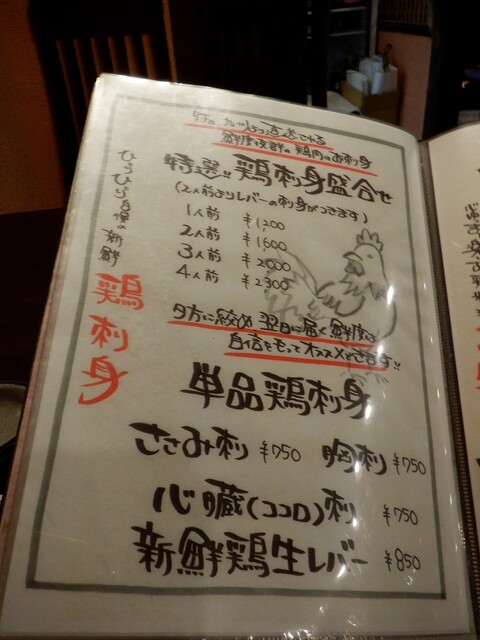 鮮度抜群の鶏肉のお刺身
特選!!鶏刺身盛合せ
(2人前よりレバーの刺身がつきます)
1人前 ¥1200
2人前 ¥1,600
3人前 ¥2000
4人前 ¥2300
夕方に絞め翌日に届く鮮度は
自信をもってオススメできます!!
単品鶏刺身
ささみ刺 ¥750 胸刺 ¥750
心臓(ココロ)刺 ¥750
新鮮鶏生レバー ¥850
ひらひら自慢の新鮮
鶏刺身